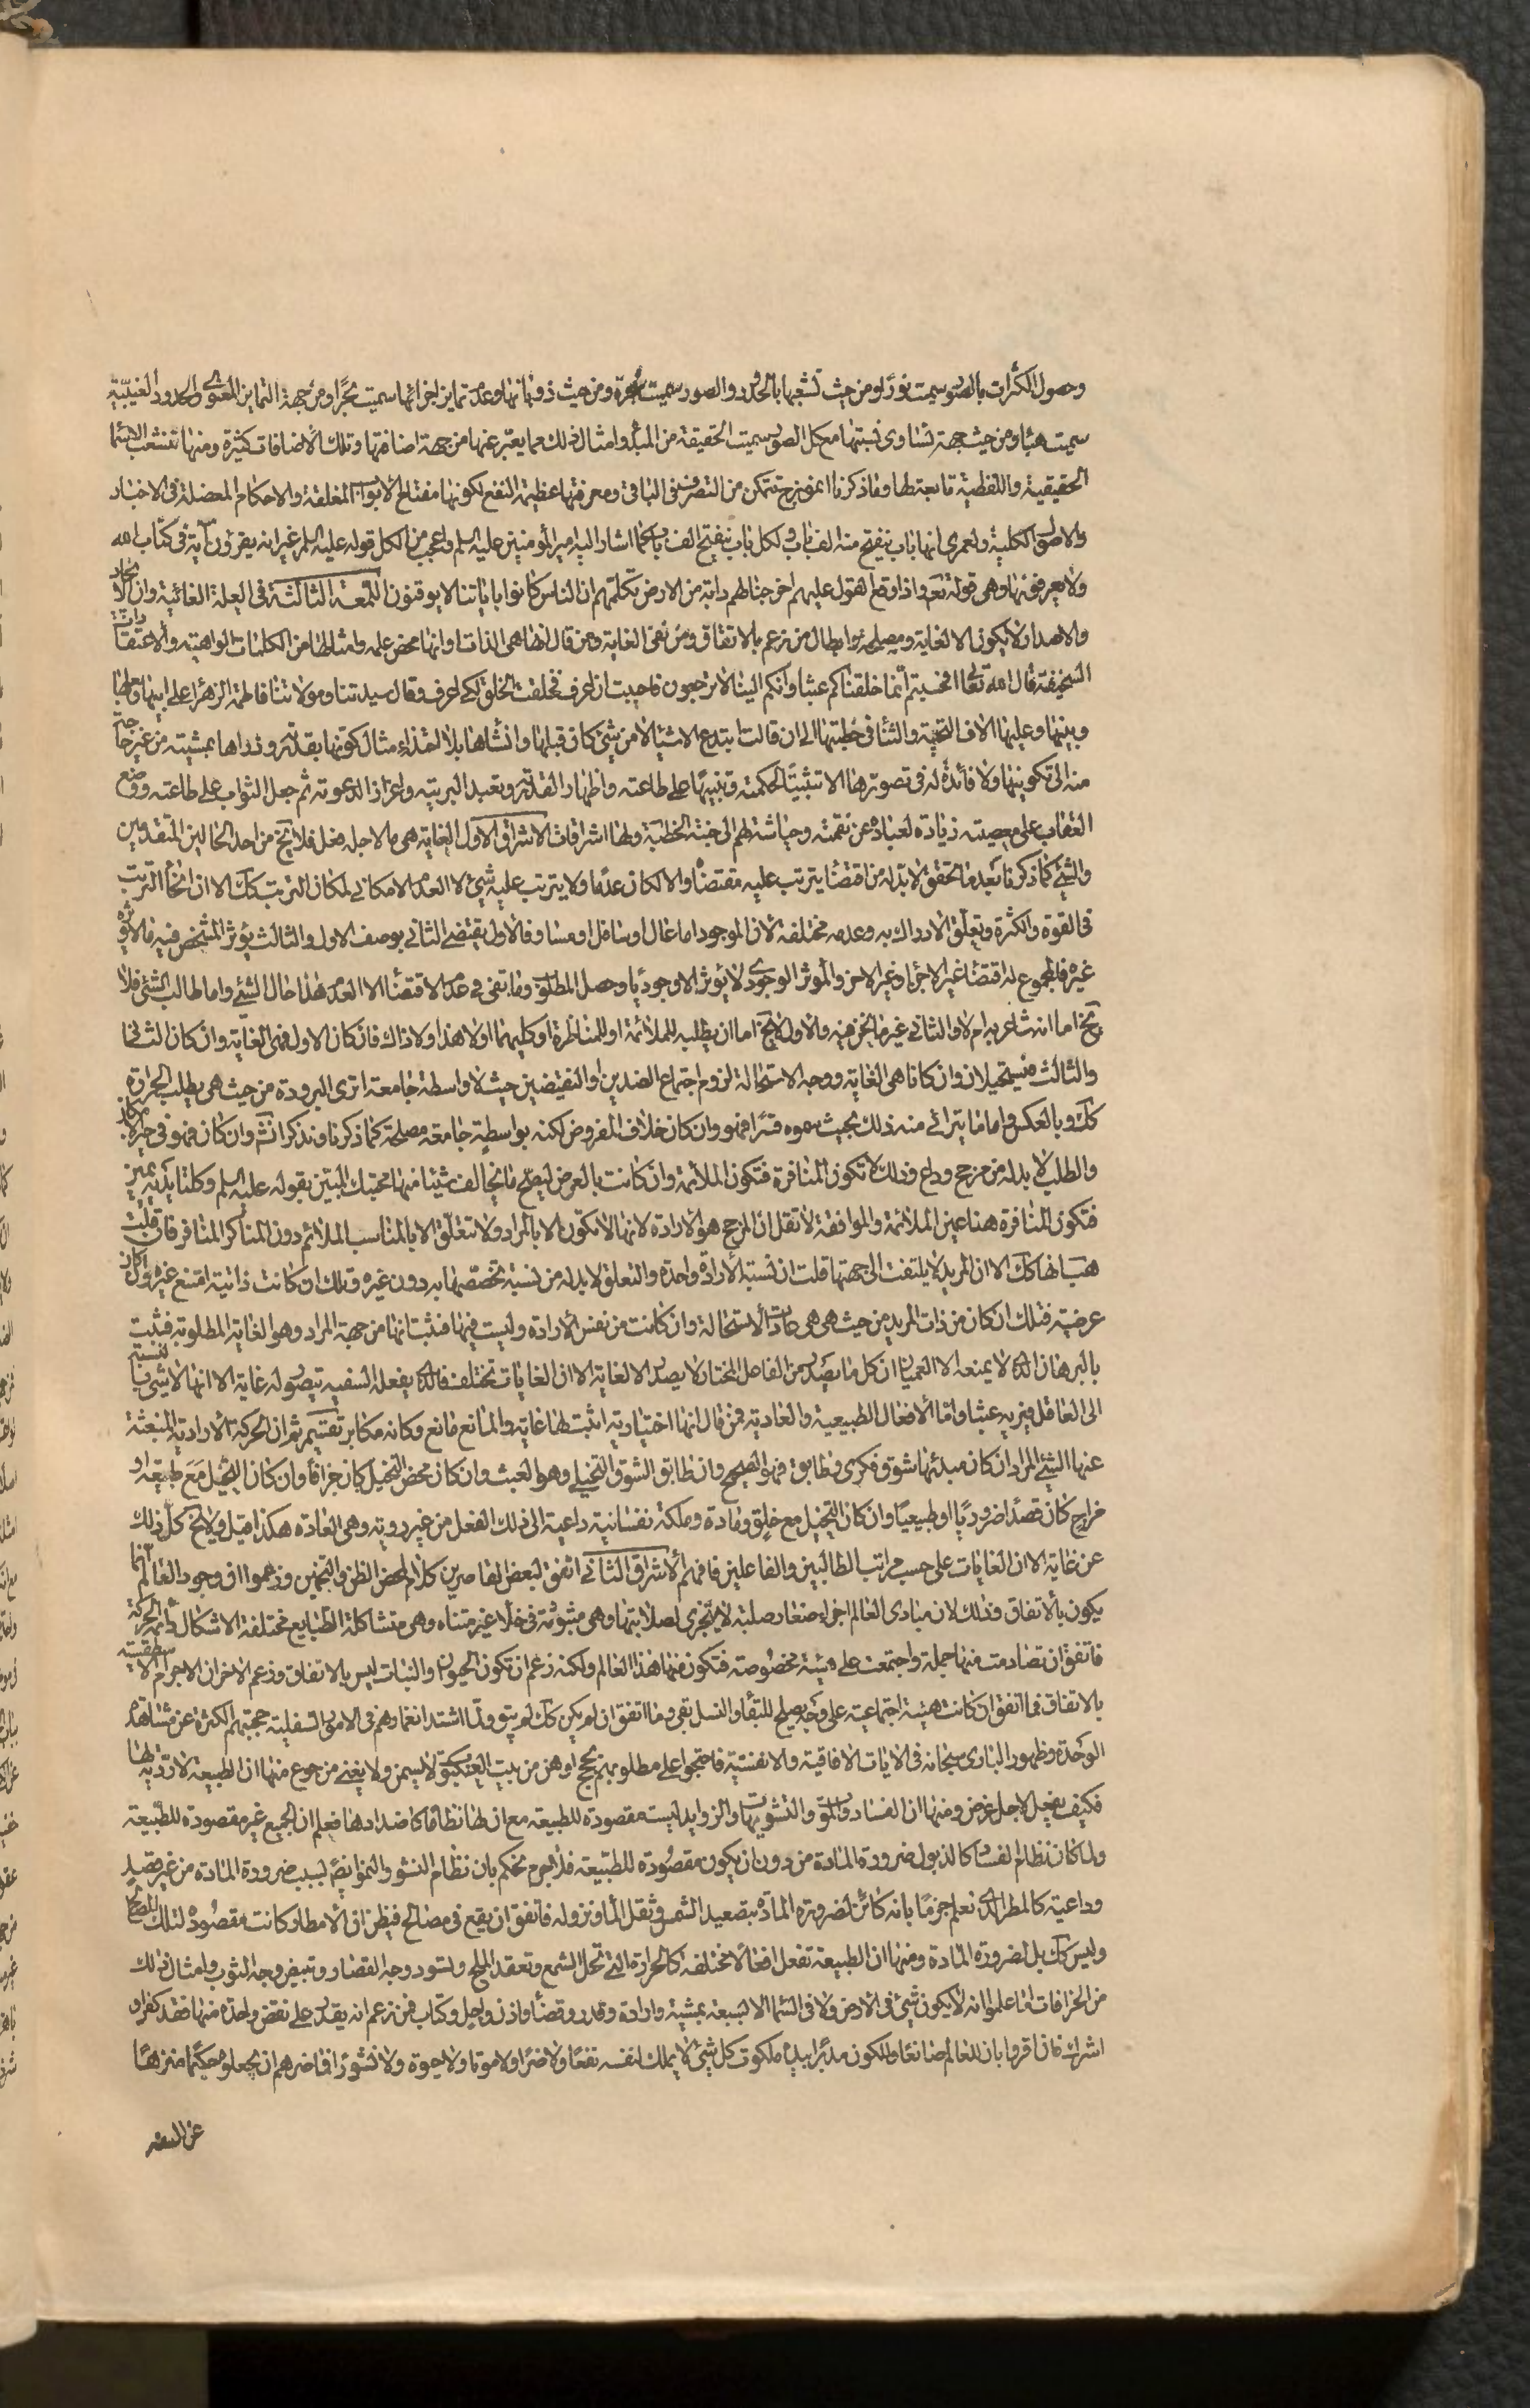 وحصول الكثرات بالصور سميت نورا ومن حيث تشعبها بالحدود والصور سميت شجرة ومن حيث ذوبانها وعدم تمايز اجزائها سميت بحرا ومن جهة التمايز المعنوى والحدود الغيبيّة
سميت هباء ومن حيث جهة تساوى نسبتها مع كل الصور سميت الحقيقة من المبدأ وامثال ذلك مما يعبّر عنها من جهة اضافتها وتلك الاضافات كثيرة ومنها تنشعب الاسماء
الحقيقية واللفظية تابعة لها وما ذكرنا انموذج تتمكن من التصرف فى الباقى ومعرفتها عظيمة النفع لكونها مفتاح الابواب المغلقة والاحكام المعضلة فى الاخبار
والاصول الكلية ولعمرى انها باب ينفتح منه الف باب ولكل باب ينفتح الف باب كما اشار اليه امير المؤمنين عليه السلم واعجب من الكل قوله عليه السلم غير انه يقرؤن آية فى كتاب الله
ولا يعرفونها وهى قوله تعم واذا وقع القول عليهم اخرجنا لهم دابة من الارض تكلّمهم ان الناس كانوا باياتنا لا يوقنون اللمعة الثالثة فى العلة الغائية وان الايجاد
والاحداث لا يكون الا لغاية ومصلحة وابطال من زعم بالاتفاق ومن نفى الغاية ومن قال انها هى الذات او انها محض علمه وامثالها من الكلمات الواهية والاعتقادات
السخيفة قال الله تعالى افحسبتم انما خلقناكم عبثا وانكم الينا لا ترجعون فاحببت ان اعرف فخلقت الخلق لكى اعرف وقال سيدتنا ومولاتنا فاطمة الزهراء على ابيها وبعلها
وبنيها وعليها الاف التحية والثناء فى خطبتها الى ان قالت ابتدع الاشياء لا من شئ كان قبلها وانشأها بلا احتذاء مثال كونها بقدرته وذرأها بمشيته من غير حاجة
منه الى تكوينها ولا فائدة له فى تصويرها الا تثبيتا لحكمته وتنبيها على طاعته واظهارا لقدرته وتعبد البريته واعزازا لدعوته ثم جعل الثواب على طاعته ووضع
العقاب على معصيته زيادة لعباده عن نقمته وحياشة لهم الى جنته الخطبة ولها اشراقات الاشراق الاول الغاية هى ما لاجله فعل فلا يخ من احد الحالين المتقدمين
والشئ كما ذكرنا بعد ما تحقق لا بد له من اقتضاء يترتب عليه مقتضاه والا لكان عدما ولا يترتب عليه شئ لا العدم الامكانى لمكان الترتب كك الا ان انحاء الترتب
فى القوة والكثرة وتعلّق الادراك به وعدمه مختلفة لان الموجود اما عال او سافل او مساو فالاول يقتضى الثانى بوصف الاول والثالث يؤثر المشخص فيه فالاثر
غيره فالمجموع له اقتضاء غير الاجزاء وغير الاخر والمؤثر الوجودى لا يؤثر الا وجوديا وحصل المطلوب وما تقى فى عدم الاقتضاء الا العدم هذا حال الشئ واما طالب الشئ فلا
يخ اما انه شاعر به ام لا والثانى غير ما نحن فيه والاول لا يخ اما ان يطلبه للملائمة او للمنافرة او كليهما او لا هذا ولا ذاك فان كان الاول فهى الغاية وان كان الثانى
والثالث فيستحيلان وان كانا هى الغاية ووجه الاستحالة لزوم اجتماع الضدين او النقيضين حيث لا واسطة جامعة اترى البرودة من حيث هى يطلب الحرارة
كك وبالعكس واما ما يترائى منه ذلك بحيث تموه قسرا فهو وان كان خلاف المفروض لكنه بواسطة جامعة مصلحة كما ذكرنا ونذكر انش وان كان فهو فى حيز
والطلب لا بد له من مرجح وداع وذلك لا تكون المنافرة فتكون الملائمة وان كانت بالعرض ليصح ما يخالف شيئا منها محبتك المبين بقوله عليه السلم وكلتا يديه يمين
فتكون المنافرة هنا عين الملائمة والموافقة لا تقل ان المرجح هو الارادة لانها لا تكون الا بالمراد ولا تتعلّق الا بالمناسب الملائم دون المناكر المنافر فان قلت
هب انها كك الا ان المريد لا يلتفت الى جهتها قلت ان نسبة الارادة واحدة والتعلق لا بد له من نسبة تخصصها به دون غيره وتلك ان كانت ذاتية امتنع غيره وان كان
عرضية فتلك ان كان من ذات المريد من حيث هى هى عادت الاستحالة وان كانت من نفس الارادة وليست فيها فثبت انها من جهة المراد وهو الغاية المطلوبة فثبت
بالبرهان الذى لا يمنعه الا العميان ان كل ما يصدر من الفاعل المختار لا يصدر الا لغاية الا ان الغايات تختلف فالذى يفعله السفيه يتصور له غاية الا انها لا شئ بالنسبة
الى العاقل فيريه عبثا واما الافعال الطبيعية والعادية فمن قال انها اختيارية اثبت لها غاية والمانع مانع وكانه مكابر تقسيم ثم ان الحركة الارادية المنبعثة
عنها الشئ المراد ان كان مبدئها شوق فكرى وطابق فهو الصحيح وان طابق الشوق التخيلى وهو العبث وان كان محض التخيل كان جزافا وان كان التخيل مع طبيعة او
مزاج كان قصدا ضروريا او طبيعيا وان كان التخيل مع خلق وعادة وملكة نفسانية داعية الى ذلك الفعل من غير روية وهى العادة هكذا قيل ولا يخ كل ذلك
عن غاية الا ان الغايات على حسب مراتب الطالبين والفاعلين فافهم الاشراق الثانى اتفق لبعض القاصرين كلام لمحض الظن والتخمين وزعموا ان وجود العالم انما
يكون بالاتفاق وذلك لان مبادى العالم اجزاء صغار صلبة لا يتجزى لصلابتها وهى مبثوثة فى خلاء غير متناه وهى متشاكلة الطبايع مختلفة الاشكال دائمة الحركة
فاتفق ان تصادمت منها جملة واجتمعت على هيئة مخصوصة فتكون منها هذا العالم ولكنه زعم ان تكون الحيوان والنبات ليس بالاتفاق وزعم الاخر ان الاجرام الاسطقسية
بالاتفاق فما اتفق ان كانت هيئة اجتماعية على وجه يصلح للبقاء والنسل بقى وما اتفق ان لم يكن كك لم يبق ولما اشتد انغمارهم فى الامور السفلية حجبتهم الكثرة عن مشاهدة
الوحدة وظهور البارى سبحانه فى الايات الافاقية والانفسية فاحتجوا على مطلوبهم بحجج اوهن من بيت العنكبوت لا يسمن ولا يغنى من جوع منها ان الطبيعة لا روية لها
فكيف يفعل لاجل غرض ومنها ان الفساد والموت والتشويهات والزوايد ليست مقصودة للطبيعة مع ان لها نظاما كاضدادها فعلم ان الجميع غير مقصودة للطبيعة
ولما كان نظام الفساد كالذبول ضرورة المادة من دون ان يكون مقصودة للطبيعة فلا جرم نحكم بان نظام النشو والنمو ايضا بسبب ضرورة المادة من غير قصد
وداعية كالمطر الذى نعلم جزما بانه كائن لضرورة المادة بتصعيد الشمس وثقل الماء ونزوله فاتفق ان يقع فى مصالح فيظن ان الامطار كانت مقصودة لتلك المصالح
وليس كك بل لضرورة المادة ومنها ان الطبيعة تفعل افعالا مختلفة كالحرارة التى تحل الشمع وتعقد الملح وتسود وجه القصار وتبيض وجه الثوب وامثال ذلك
من الخرافات اما علموا انه لا يكون شئ فى الارض ولا فى السماء الا بسبعة بمشية وارادة وقدر وقضاء واذن واجل وكتاب فمن زعم انه يقدر على نقض واحدة منها فقد كفر او
اشرك فان اقروا بان للعالم صانعا وللكون مدبرا بيده ملكوت كل شئ لا يملك لنفسه نفعا ولا ضرا ولا موتا ولا حيوة ولا نشورا فما ضرهم ان يجعلوه حكيما منزها
عن السفه